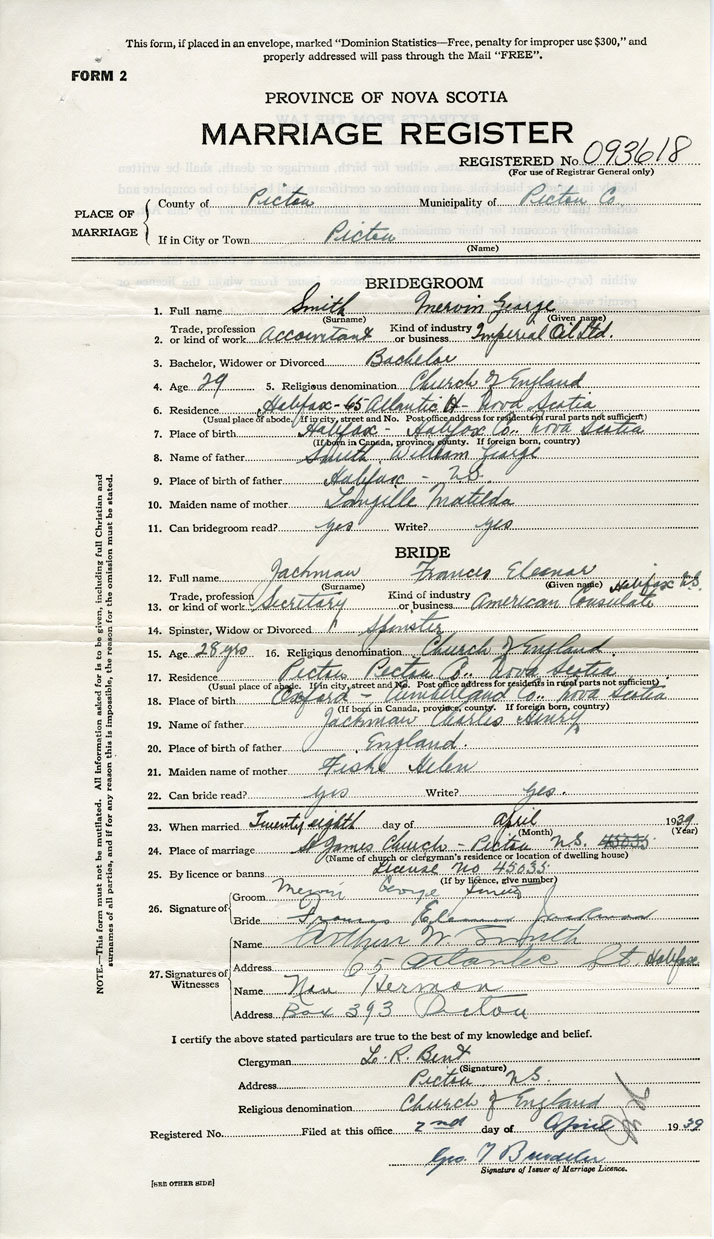 This form, if placed in an envelope, marked "Dominion Statistics—Free, penalty for improper use $300," and
properly addressed will pass through the Mail "FREE".
FORM 2
PROVINCE OF NOVA SCOTIA
MARRIAGE REGISTER
REGISTERED No. 093618
(For use of Registrar General only)
PLACE OF MARRIAGE
County of Pictou Municipality of Pictou Co.
If in City or Town Pictou
(Name)
BRIDEGROOM
1. Full name Smith Mervin George
(Surname) (Given name)
2. Trade, profession or kind of work Accountant Kind of industry or business Imperial Oil Ltd.
3. Bachelor, Widower or Divorced Bachelor
4. Age 29 5. Religious denomination Church of England
6. Residence Halifax - 65 Atlantic St - Nova Scotia
(Usual place of abode. If in city, street and No. Post office address for residents in rural parts not sufficient)
7. Place of birth Halifax - Halifax Co., Nova Scotia
(If born in Canada, province, county. If foreign born, country)
8. Name of father Smith William George
9. Place of birth of father Halifax - N.S.
10. Maiden name of mother Langille Matilda
11. Can bridegroom read? yes Write? yes
BRIDE
12. Full name Jackman Frances Eleanor
(Surname) (Given name) Halifax N.S.
13. Trade, profession or kind of work Secretary Kind of industry or business American Consulate
14. Spinster, Widow or Divorced Spinster
15. Age 28 yrs 16. Religious denomination Church of England
17. Residence Pictou Pictou Co., Nova Scotia
(Usual place of abode. If in city, street and No. Post office address for residents in rural parts not sufficient)
18. Place of birth Oxford - Cumberland Co., Nova Scotia
(If born in Canada, province, county. If foreign born, country)
19. Name of father Jackman Charles Henry
20. Place of birth of father England.
21. Maiden name of mother Fiske Helen
22. Can bride read? yes Write? yes.
23. When married Twenty eighth day of April 1939
(Month) (Year)
24. Place of marriage St James Church - Pictou N.S. 45035
(Name of church or clergyman's residence or location of dwelling house)
25. By licence or banns License No 45035
(If by licence, give number)
26. Signature of
Groom Mervin George Smith
Bride Frances Eleanor Jackman
27. Signatures of Witnesses
Name Arthur W. Smith
Address 65 Atlantic St. Halifax
Name Nan Herman
Address Box 393 Pictou
I certify the above stated particulars are true to the best of my knowledge and belief.
Clergyman L. R. Bent
(Signature)
Address Pictou, N.S.
Religious denomination Church of England
Registered No. Filed at this office 2nd day of April 1939
Geo.
Signature of Issuer of Marriage Licence.
[SEE OTHER SIDE]
NOTE.—This form must not be mutilated. All information asked for is to be given, including full Christian and
surnames of all parties, and if for any reason this is impossible, the reason for the omission must be stated.